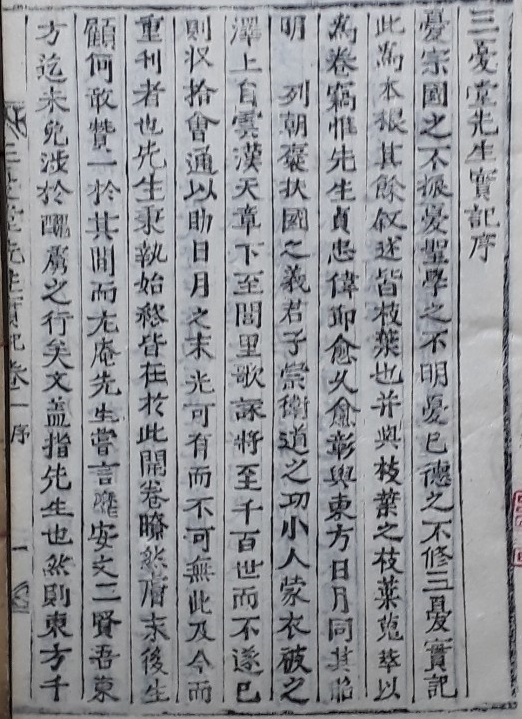 三憂堂先生實記序
憂宗國之不振憂聖學之不明憂己德之不修三憂實記
此爲本根其餘叙述皆枝葉也并與枝葉之枝葉蒐萃以
爲卷竊惟先生貞忠偉節愈久愈彰與東方日月同其昭
明 列朝褒扶國之義君子崇衛道之功小人蒙衣被之
澤上自雲漢天章下至閭里歌詠將至千百世而不遂已
則収拾會通以助日月之末光可有而不可無此及今而
重刊者也先生秉執始終皆在於此開卷瞭然膚末後生
顧何敢贊一於其間而尤庵先生嘗言雖安文二賢吾東
方迄未免涉於醜虜之行矣文盖指先生也然則東方千
三憂堂先生實記卷一 序 一